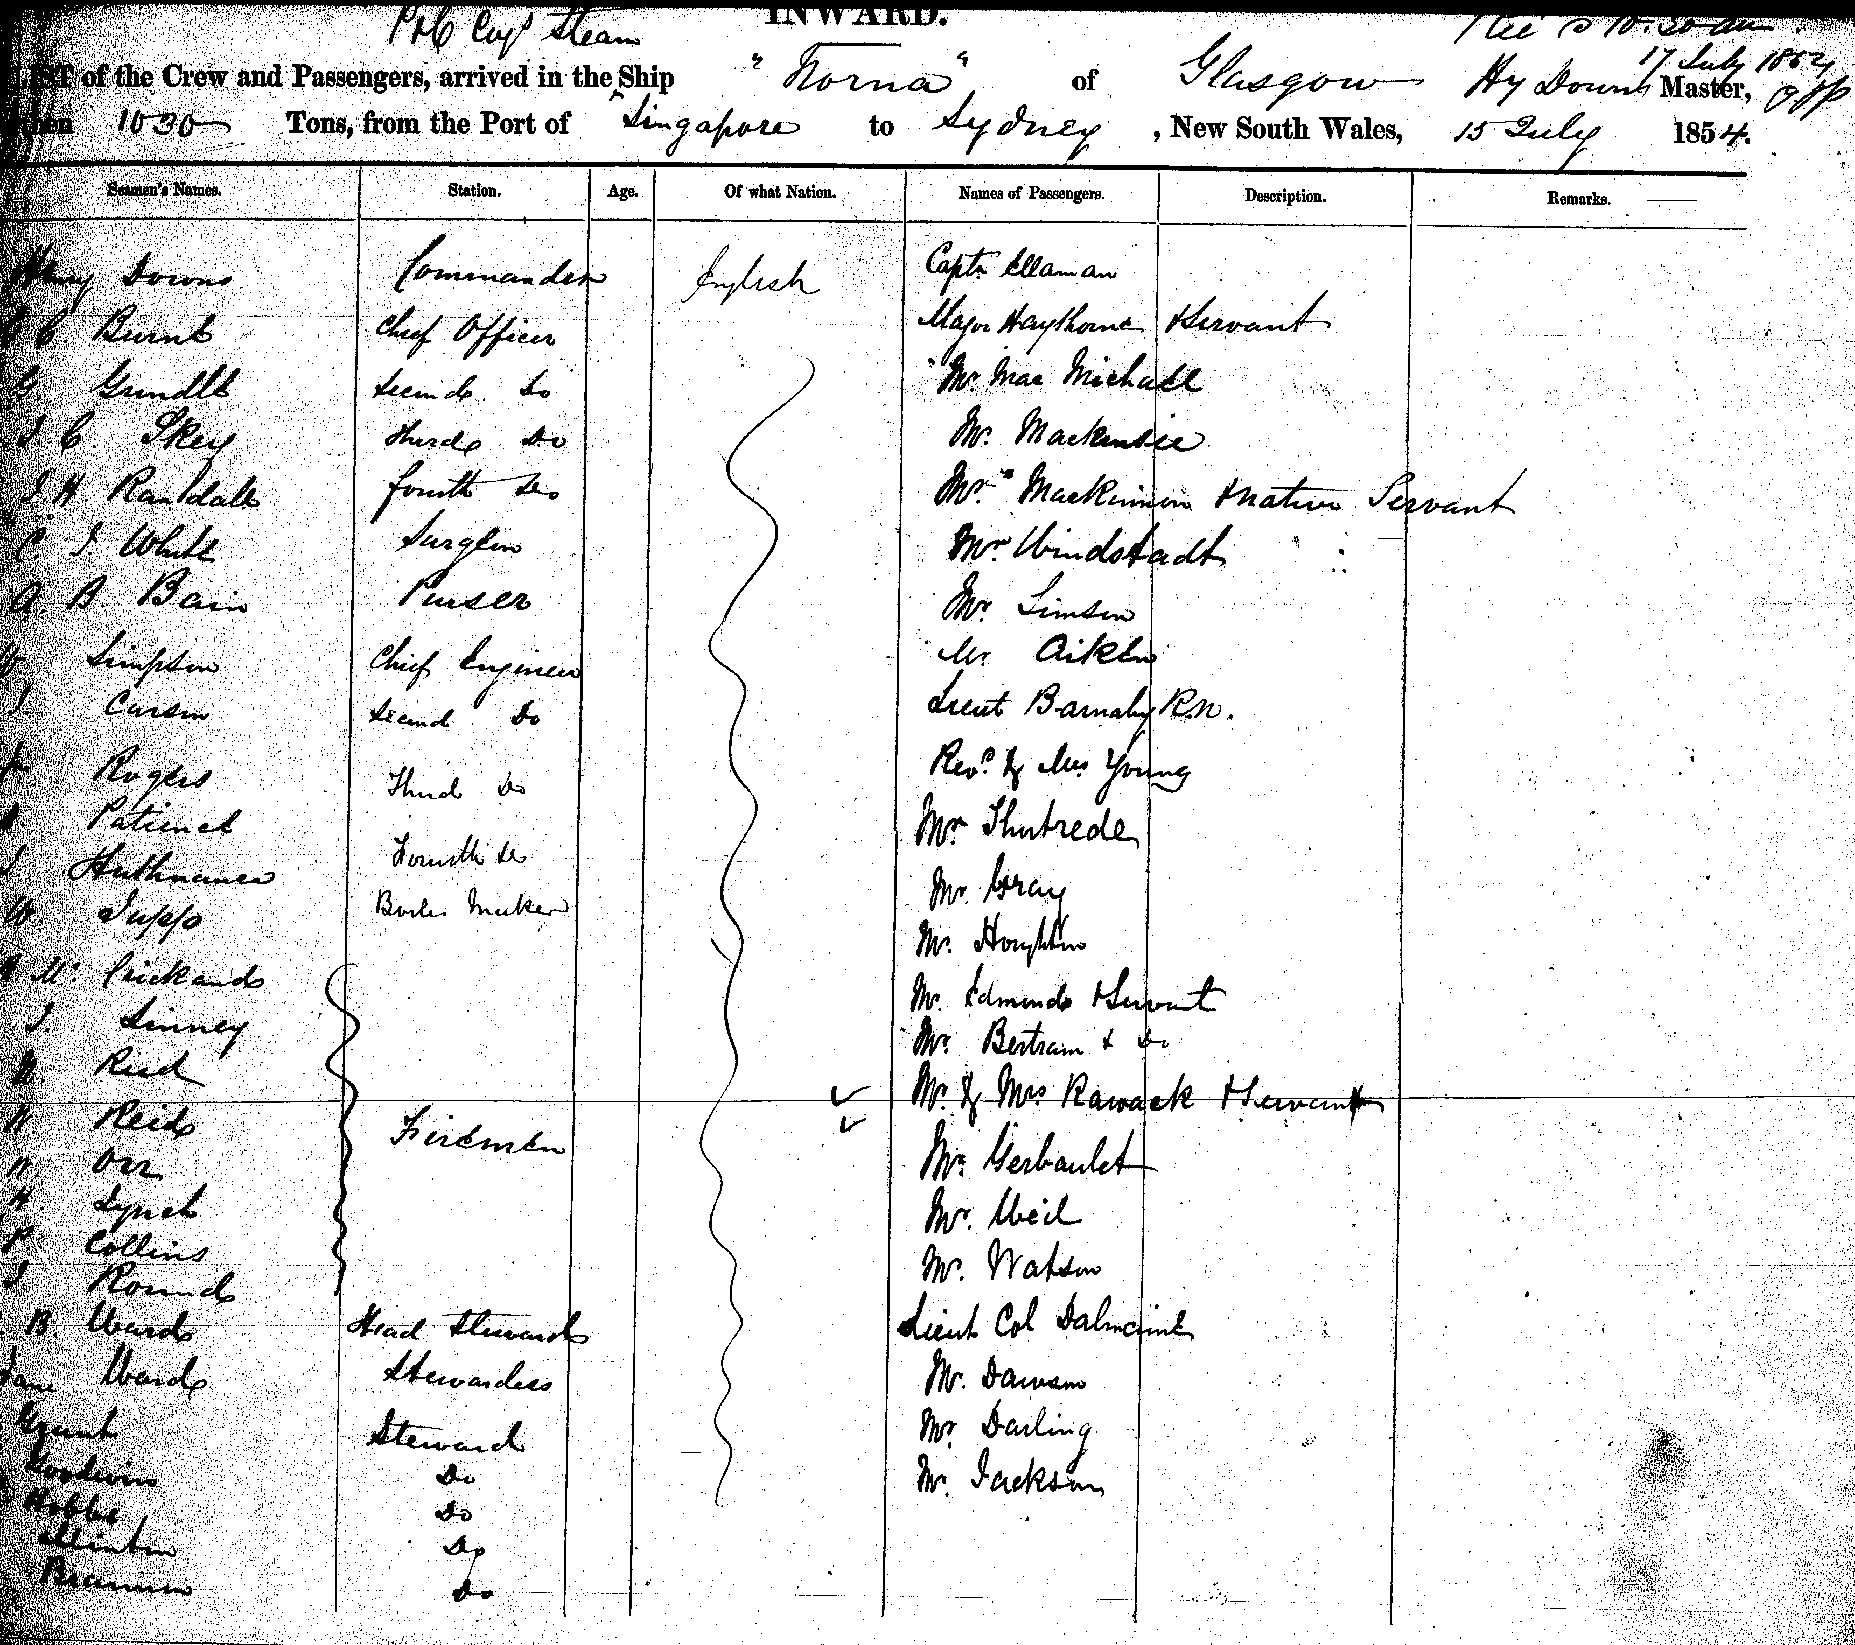 INWARD.
P & O Coy's Steam
17 July 1854
of the Crew and Passengers, arrived in the Ship "Norna" of Glasgow Hy Downs Master,
1030 Tons, from the Port of Singapore to Sydney, New South Wales, 15 July 1854.
Seamen's Names. Station. Age. Of what Nation. Names of Passengers. Description. Remarks.
Henry Downs Commander English Captn
Chief Officer Major Haythorne & Servant
G Second Do Mr Mac Michael
J C Skey Third Do Mr. Mackenzie
J H Randall fourth Do Mrs Mackinnon & native Servant
C J White Surgeon Mr. Windstadt
A B Bain Purser Mr. Simson
Simpson Chief Engineer Mr Aiken
Carson Second Do Lieut Barnaby R.N.
Rogers Third Do Revd. & Mrs Young
Patience Fourth Do Mr
Boiler Maker Mr. Gray
W Jupp Mr. Houghton
Mc Mr. Edmonds & Servant
J. Linney Mr. Bertram & Do
Reid Mr. & Mrs Rawack & Servant
Reid Firemen Mr. Gerbaulet
Orr Mr. Weil
Lynch Mr. Watson
P Collins Lieut Col
J Round
B Ward Head Steward
Jane Ward Stewardess Mr. Dawson
Grant Steward Mr. Darling
Goodwin Do Mr. Jackson
Hobbs Do
Do
Do